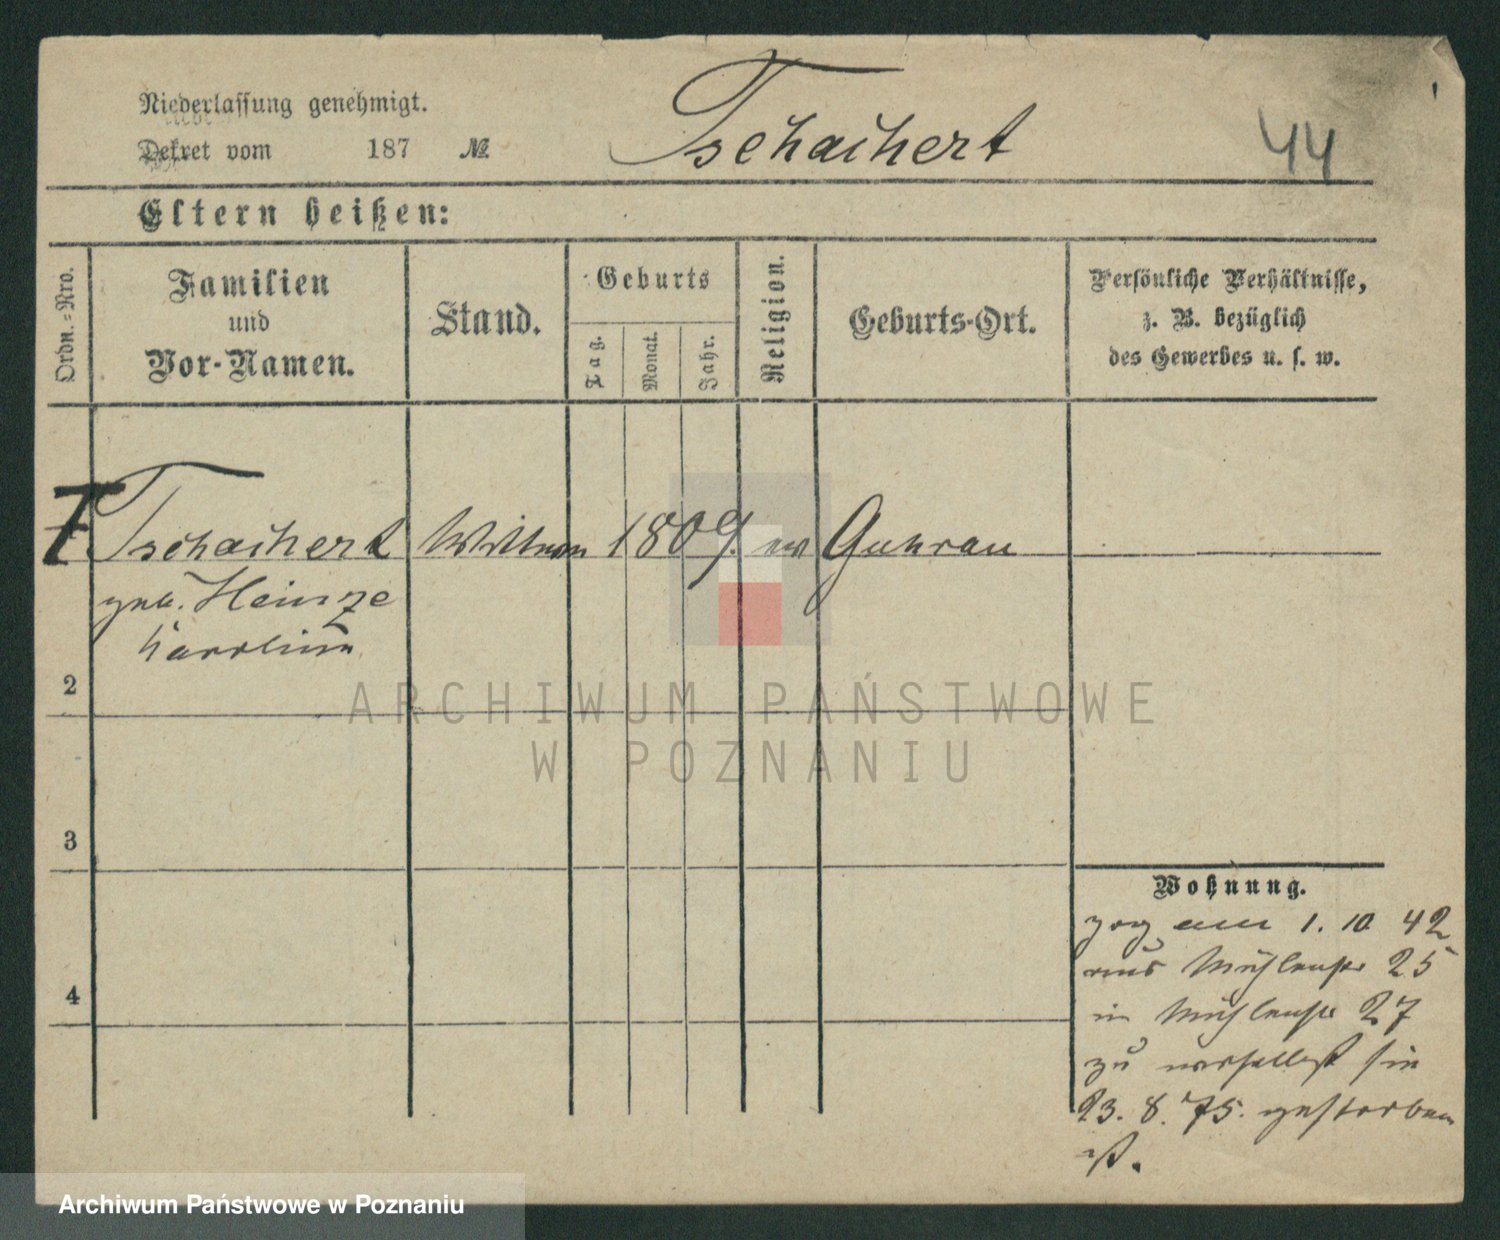 Niederlassung genehmigt.
Dekret vom 187 №
Tschaichert
44
Eltern heißen:
Ordn.-Nro.
Familien
und
Vor-Namen.
Stand.
Geburts
Tag.
Monat.
Jahr.
Religion.
Geburts-Ort.
Persönliche Verhältnisse,
z. B. bezüglich
des Gewerbes u. s. w.
Tschaichert 1809. ev Guhrau
geb. Heinze
Karoline
2
3
4
Wohnung.
zog am 1. 10 42
aus Mühlenstr 25
in Mühlenstr 27
zu woselbst sie
23. 8. 75. gestorben
ist.
ARCHIWUM PAŃSTWOWE
W POZNANIU
Archiwum Państwowe w Poznaniu